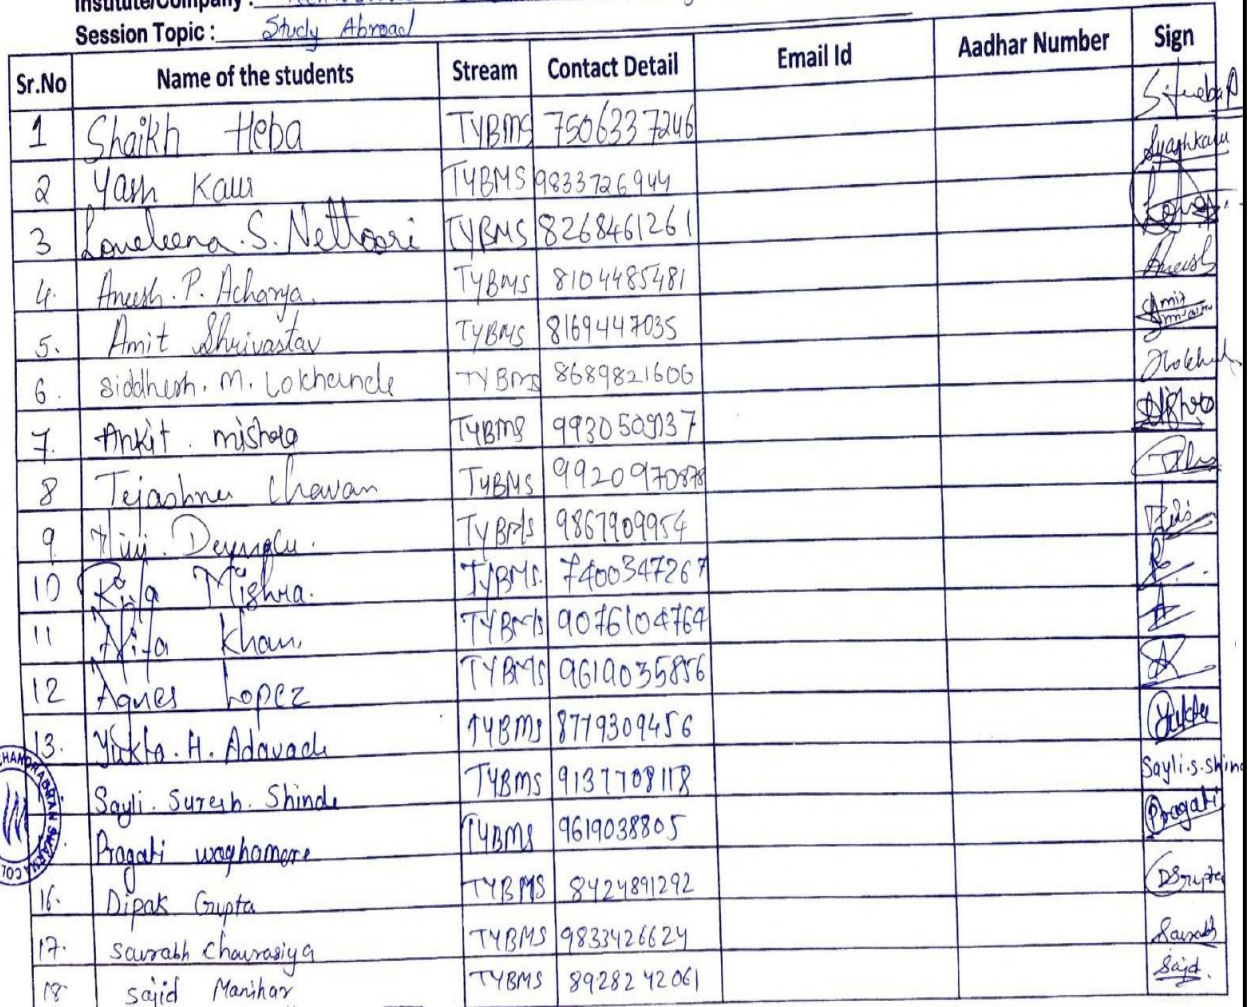 Institute/Company :
Session Topic : Study Abroad
Sr.No Name of the students Stream Contact Detail Email Id Aadhar Number Sign
1 Shaikh Heba TYBMS 7506337246
2 Yash Kaur TYBMS 9833726944 Syashkaur
3 Loveleena.S.Nettoori TYBMS 8268461261
4. Aneesh.P.Acharya. TYBMS 8104485481 Aneesh
5. Amit Shrivastav TYBMS 8169447035 Amit
6. Siddhesh.M.Lokhande TYBMS 8689821606
7. Ankit.mishra TYBMS
8 Tejashree Chavan TYBMS 9920970878
9 TYBMS 9867909954
10 Mishra. TYBMS. 7400347267
11 Khan. TYBMS 9076104764
12 Agnes Lopez TYBMS 9619035856
13. Yukta.H.Adavade TYBMS 8779309456 Yukta
Sayli.Suresh.Shinde TYBMS 9137708118 Sayli.s.shind
Pragati waghamare TYBMS 9619038805 Pragati
16. Dipak Gupta TYBMS 8424891292 DSGupta
17. Saurabh Chaurasiya TYBMS 9833426624 Saurabh
18 Sajid Manihar TYBMS 8928242061 Sajid.